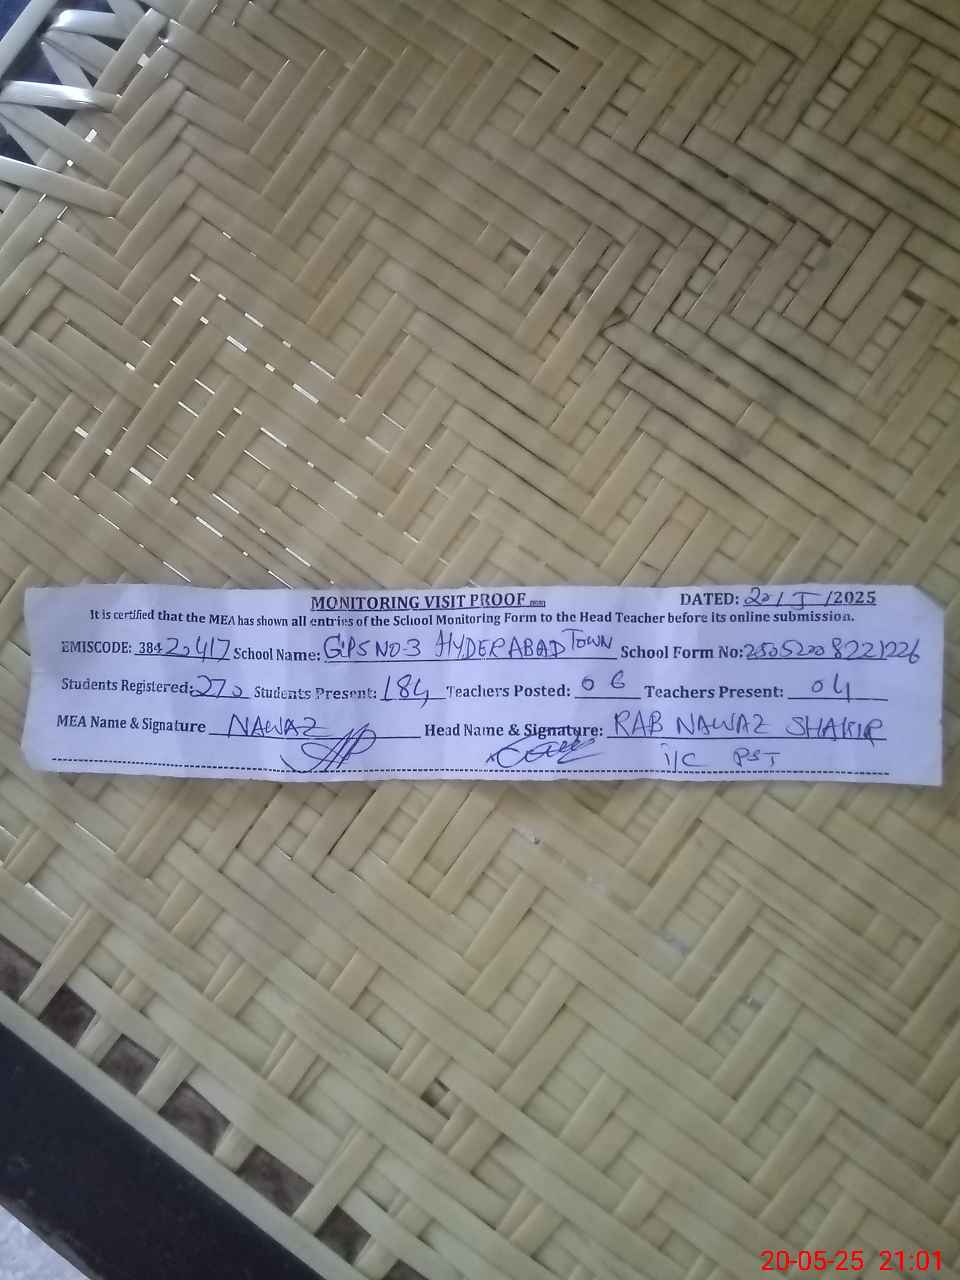 MONITORING VISIT PROOF
DATED: 20/5/2025
It is certified that the MEA has shown all entries of the School Monitoring Form to the Head Teacher before its online submission.
EMISCODE: 38420417 School Name: GPS NO-3 HYDERABAD TOWN School Form No:
Students Registered: 270 Students Present: 184 Teachers Posted: 06 Teachers Present: 04
MEA Name & Signature NAWAZ Head Name & Signature: RAB NAWAZ SHAKIR
i/c PST
20-05-25 21:01